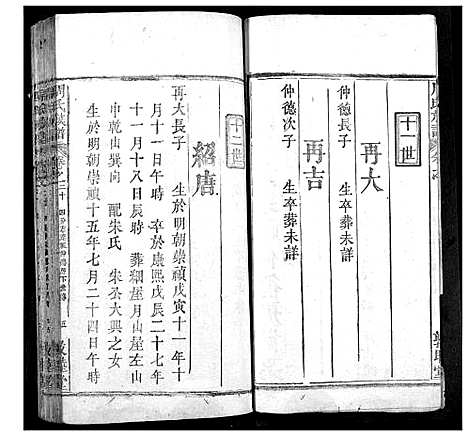 十一世
再大
仲德長子
生卒葬未詳
再吉
仲德次子
生卒葬未詳
十二世
紹唐
再大長子
生於明朝崇禎戊寅十一年十
月十一日午時
卒於康熙戊辰二十七年
十一月十八日辰時
葬烟屋月山屋左山
中乾山巽向
配朱氏
朱公大興之女
生於明朝崇禎十五年七月二十四日午時
周氏族譜
五